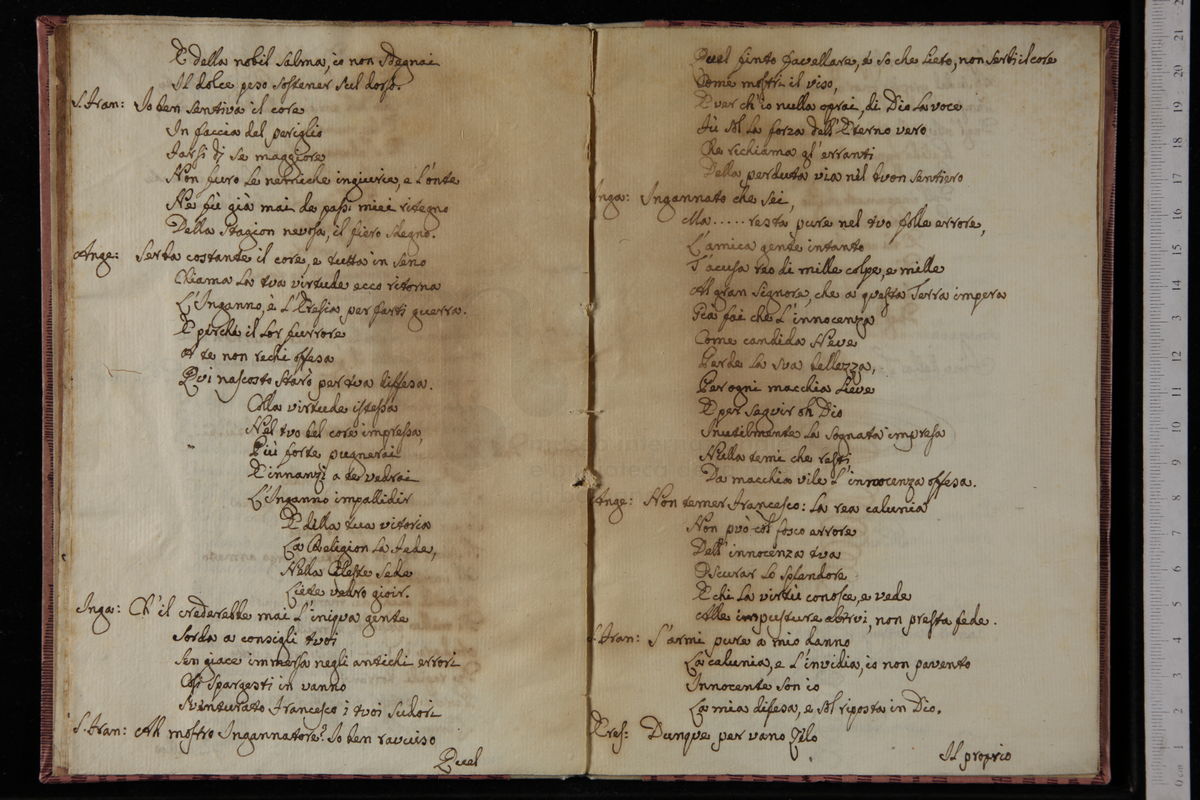 E della nobil Salma, io non Sdegnai
Il dolce peso sostener Sul dorso.
S. Fran: Io ben sentiva il core
In faccia del periglio
Farsi di se maggiore
Non furo le nemiche ingiurie, e l'onte
Ne fù già mai de passi miei ritegno
Della Stagion nevosa, il fiero Sdegno.
Ange: Serba costante il core, e tutta in Seno
Chiama la tua virtude ecco ritorna
L'Inganno, è L'Eresia per farti guerra.
E perche il lor furrore
A te non rechi offesa
Qui nascosto starò per tua diffesa.
Alla virtude istessa
Nel tuo bel core impressa,
Più forte pugnerai
E innanzi a te vedrai
L'Inganno impallidir
E della tua vitoria
La Religion la Fede,
Nella Celeste Sede
Liete vedrò gioir.
Inga: Ch'il crederebbe mai L'iniqua gente
Sorda a consigli tuoi
Sen giace immersa negli antichi errori
Così Spargesti in vanno
Sventurato Francesco i tuoi Sudori
S. Fran: Ah mostro Ingannatore! Io ben ravuiso
Quel
Quel finto favellare, è so che Lieto, non Serti il core
Come mostri il viso,
E ver ch'io nulla oprai, di Dio la voce
Fù Sol la forza dell'Eterno vero
Che richiama gl'erranti
Della perduta via nel buon Sentiero
Inga: Ingannato che Sei,
Ma ..... resta pure nel tuo folle errore,
L'amica gente intanto
T'acusa reo di mille colpe, e mille
Al gran Signore, che a questa Terra impera
Già fai che L'innocenza
Come candida Neve
Perde la sua bellezza,
Per ogni macchia Lieve
E per seguir oh Dio
Inutilmente la Sognata impresa
Nulla temi che resti
Da macchia vile L'innocenza offesa.
Ange: Non temer Francesco: la rea calunia
Non può col fosco errore
Dell'innocenza tua
Oscurar lo Splendore
E chi la virtù conosce, e vede
Alle imposture altrui, non presta fede.
S. Fran: S'armi pure a mio danno
La calunia, e L'invidia, io non pavento
Innocente Son io
La mia difesa, e Sol riposta in Dio.
Eres: Dunque per vano Zelo
Il proprio